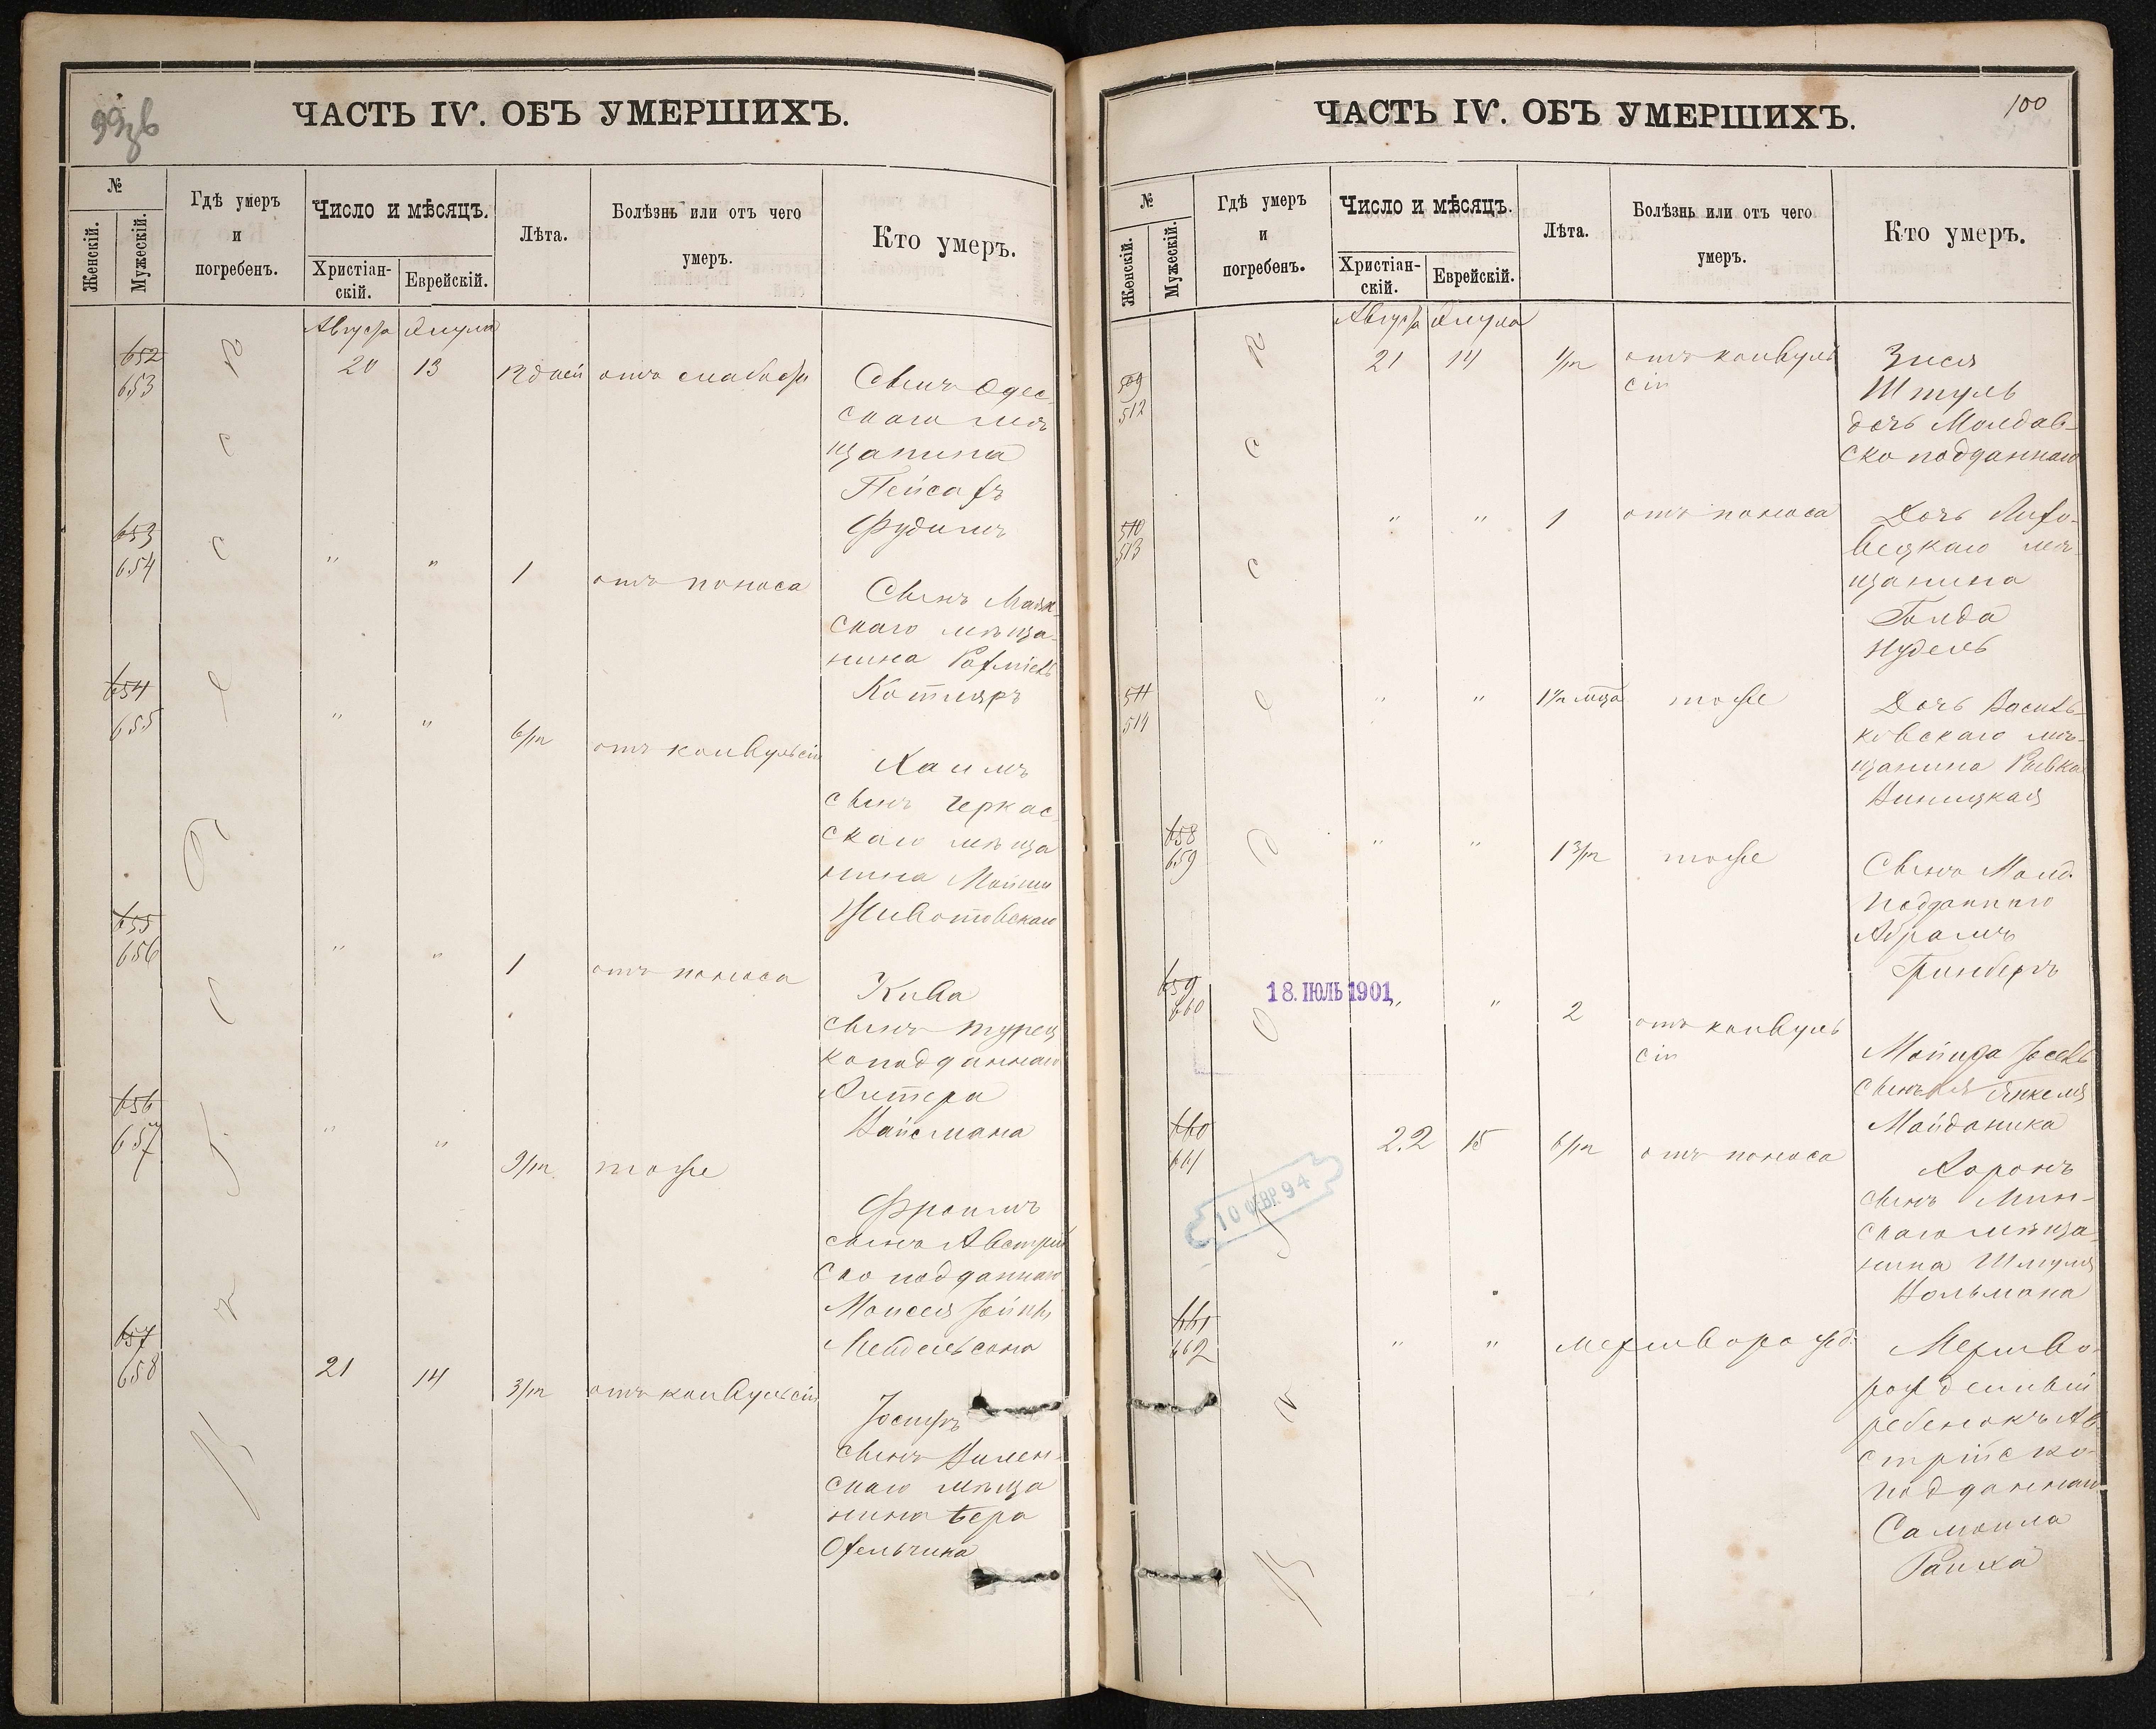 ЧАСТЬ IV. ОБЪ УМЕРШИХЪ.
№
Женскій.
Мужескій.
Гдѣ умеръ
и
погребенъ.
Число и мѣсяцъ.
Христіан-
скій.
Еврейскій.
Лѣта.
Болѣзнь или отъ чего
умеръ.
Кто умеръ.
Августа Элула
652
653
20 13 12 дней отъ слабости
Сынъ Одес-
скаго мѣ-
щанина
Пейсахъ
Фудимъ
653
654
" " 1 отъ поноса
Сынъ
скаго мѣща-
нина
Котляръ
654
655
" " 6/m отъ конвульсіи
Хаимъ
сынъ Черкас-
скаго мѣща
нина Мойши
Животовскаго
655
656
" " 1 отъ поноса
Кива
сынъ турец
коподданнаго
Альтера
Вайсмана
656
657
" " 9/m тоже
Фроимъ
сынъ Австрій
ско подданнаго
Моисея
Мендельсона
657
658
21 14 3/m отъ конвульсіи
Іосифъ
сынъ Вилен-
скаго мѣща
нина Бера
ЧАСТЬ IV. ОБЪ УМЕРШИХЪ.
100
№
Женскій.
Мужескій.
Гдѣ умеръ
и
погребенъ.
Число и мѣсяцъ.
Христіан-
скій.
Еврейскій.
Лѣта.
Болѣзнь или отъ чего
умеръ.
Кто умеръ.
Августа Элула
509
512
21 14 1/m отъ конвуль
сіи
Зися
Штуль
дочь Молдав-
ско подданнаго
510
513
" " 1 отъ поноса
Дочь
вецкаго мѣ-
щанина
Голда
Нудель
511
514
" " тоже
Дочь Василь-
ковскаго мѣ-
щанина Ривка
Виницкая
658
659
" " тоже
Сынъ Молд.
подданнаго
Абрамъ
Гринбергъ
659
660
18. ІЮЛЬ 1901
" " 2 отъ конвуль
сіи
сынъ Янкеля
Майданика
660
661
22 15 6/m отъ поноса
10 ФЕВР. 94
Аронъ
сынъ Мин-
скаго мѣща-
нина Шмуля
Вольмана
661
662
" " мертворожд.
Мертво-
рожденный
ребенокъ Ав-
стрійско-
подданнаго
Самоила
Раиха